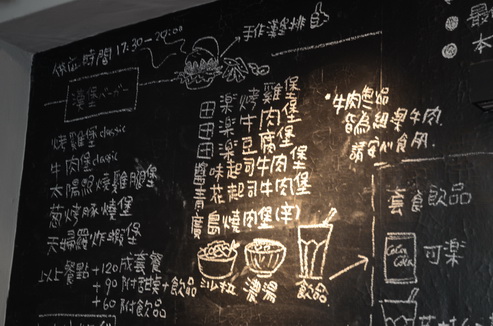 供應時間 17:30~20:00
手作漢堡排
漢堡
烤雞堡 classic
牛肉堡 classic
太陽照燒雞腿堡
蔥烤豚燒堡
天婦羅炸蝦堡
以上餐點 +120 成套餐
+90 附甜菜+飲品
+60 附飲品
田樂烤雞堡
田樂牛肉堡
田樂豆腐堡
醬味起司牛肉堡
青花起司牛肉堡
廣島燒肉堡(辛)
沙拉 濃湯 飲品
•牛肉
皆為紐澳牛肉.
請安心食用.
套食飲品
Coca Cola
可樂
最
本